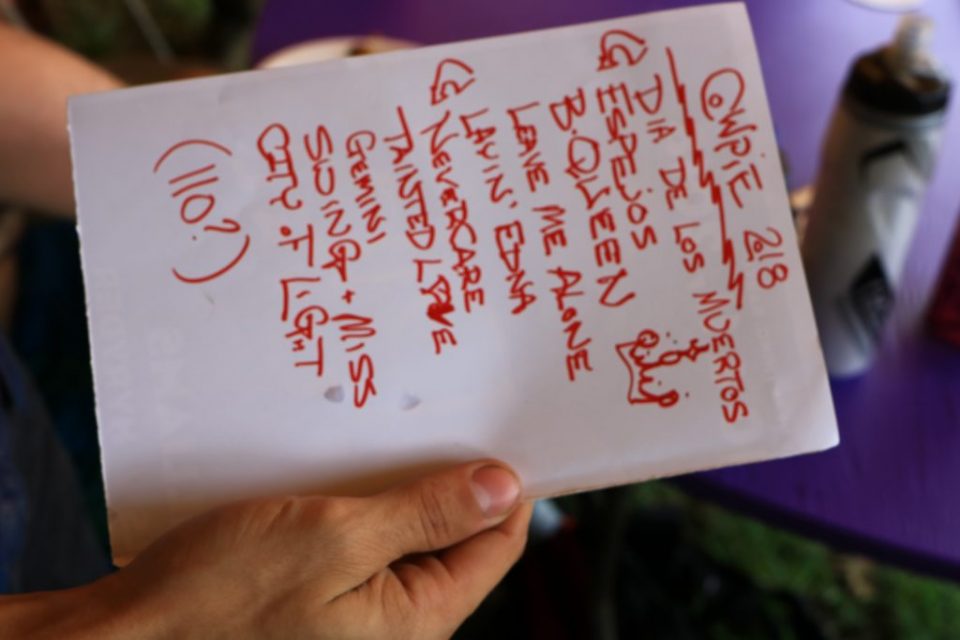 COWPIE 2018
DIA DE LOS MUERTOS
ESPEJOS
B. QUEEN
LEAVE ME ALONE
LAVIN' EDNA
NEVERCARE
TAINTED LOVE
GEMINI
SIDING + MISS
CITY OF LIGHT
(110?)